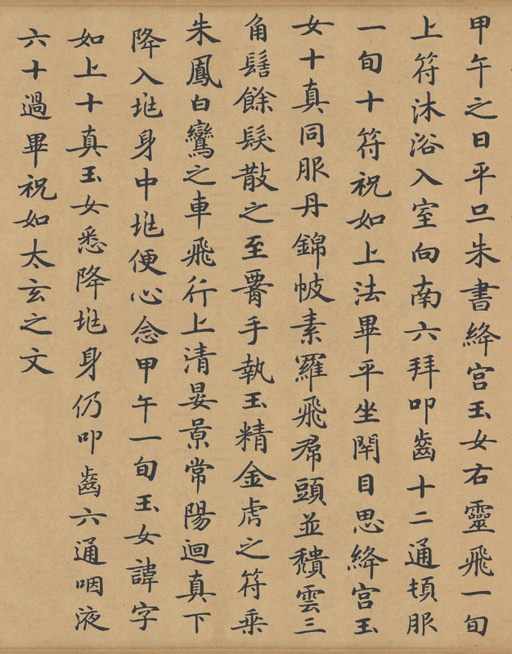 甲午之日平旦朱書絳宮玉女右靈飛一旬
上符沐浴入室向南六拜叩齒十二通頓服
一旬十符祝如上法畢平坐閉目思絳宮玉
女十真同服丹錦帔素羅飛帬頭並穨雲三
角髻餘髮散之至腰手執玉精金虎之符乘
朱鳳白鸞之車飛行上清晏景常陽迴真下
降入兆身中兆便心念甲午一旬玉女諱字
如上十真玉女悉降兆身仍叩齒六通咽液
六十過畢祝如太玄之文